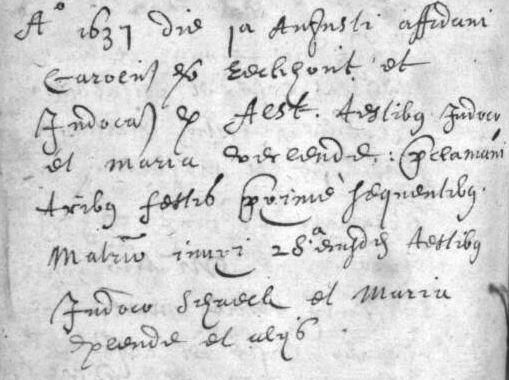 A° 1637 die 1a Augusti affidavi
Carolus Eeckhout et
Judoca Aelst. testibus Judoco
et maria : proclamavi
tribus festis proxime sequentibus
Matrio iunxi 28.a eiusdem testibus
Judoco Schaeck et Maria
et alijs .